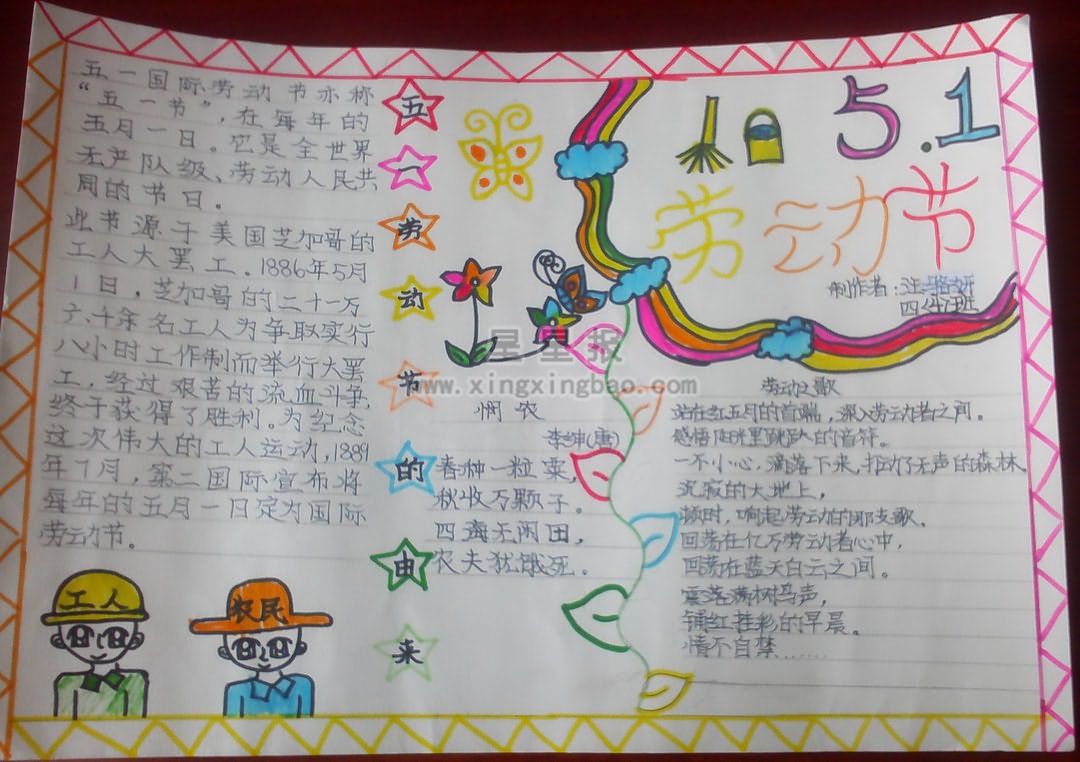 五一国际劳动节亦称
“五一节”,在每年的
五月一日。它是全世界
无产队级、劳动人民共
同的节日。
此节源于美国芝加哥的
工人大罢工.1886年5月
1日,芝加哥的二十一万
六千余名工人为争取实行
八小时工作制而举行大罢
工,经过艰苦的流血斗争,
终于获得了胜利。为纪念
这次伟大的工人运动,1889
年7月,第二国际宣布将
每年的五月一日定为国际
劳动节。
工人
农民
五
一
劳
动
节
的
由
来
悯农
李绅(唐)
春种一粒粟,
秋收万颗子。
四海无闲田,
农夫犹饿死.
5.1
劳动节
制作者:汪
四
班
劳动之歌
站在红五月的首端,深入劳动者之间。
感悟阳光里跳跃的音符。
一不小心,滴落下来,打动了无声的森林
沉寂的大地上,
顿时,响起劳动的那支歌。
回荡在亿万劳动者心中,
回荡在蓝天白云之间。
震落满树鸟声,
铺红挂彩的早晨。
情不自禁......
星星报
www.xingxingbao.com